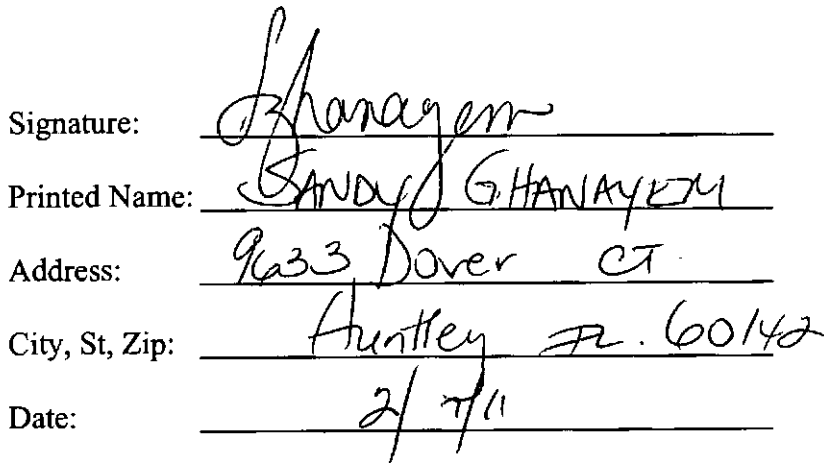 Signature: SGhanayem
Printed Name: SANDY GHANAYEM
Address: 9633 Dover CT.
City, St, Zip: Huntley IL. 60142
Date: 2/7/11